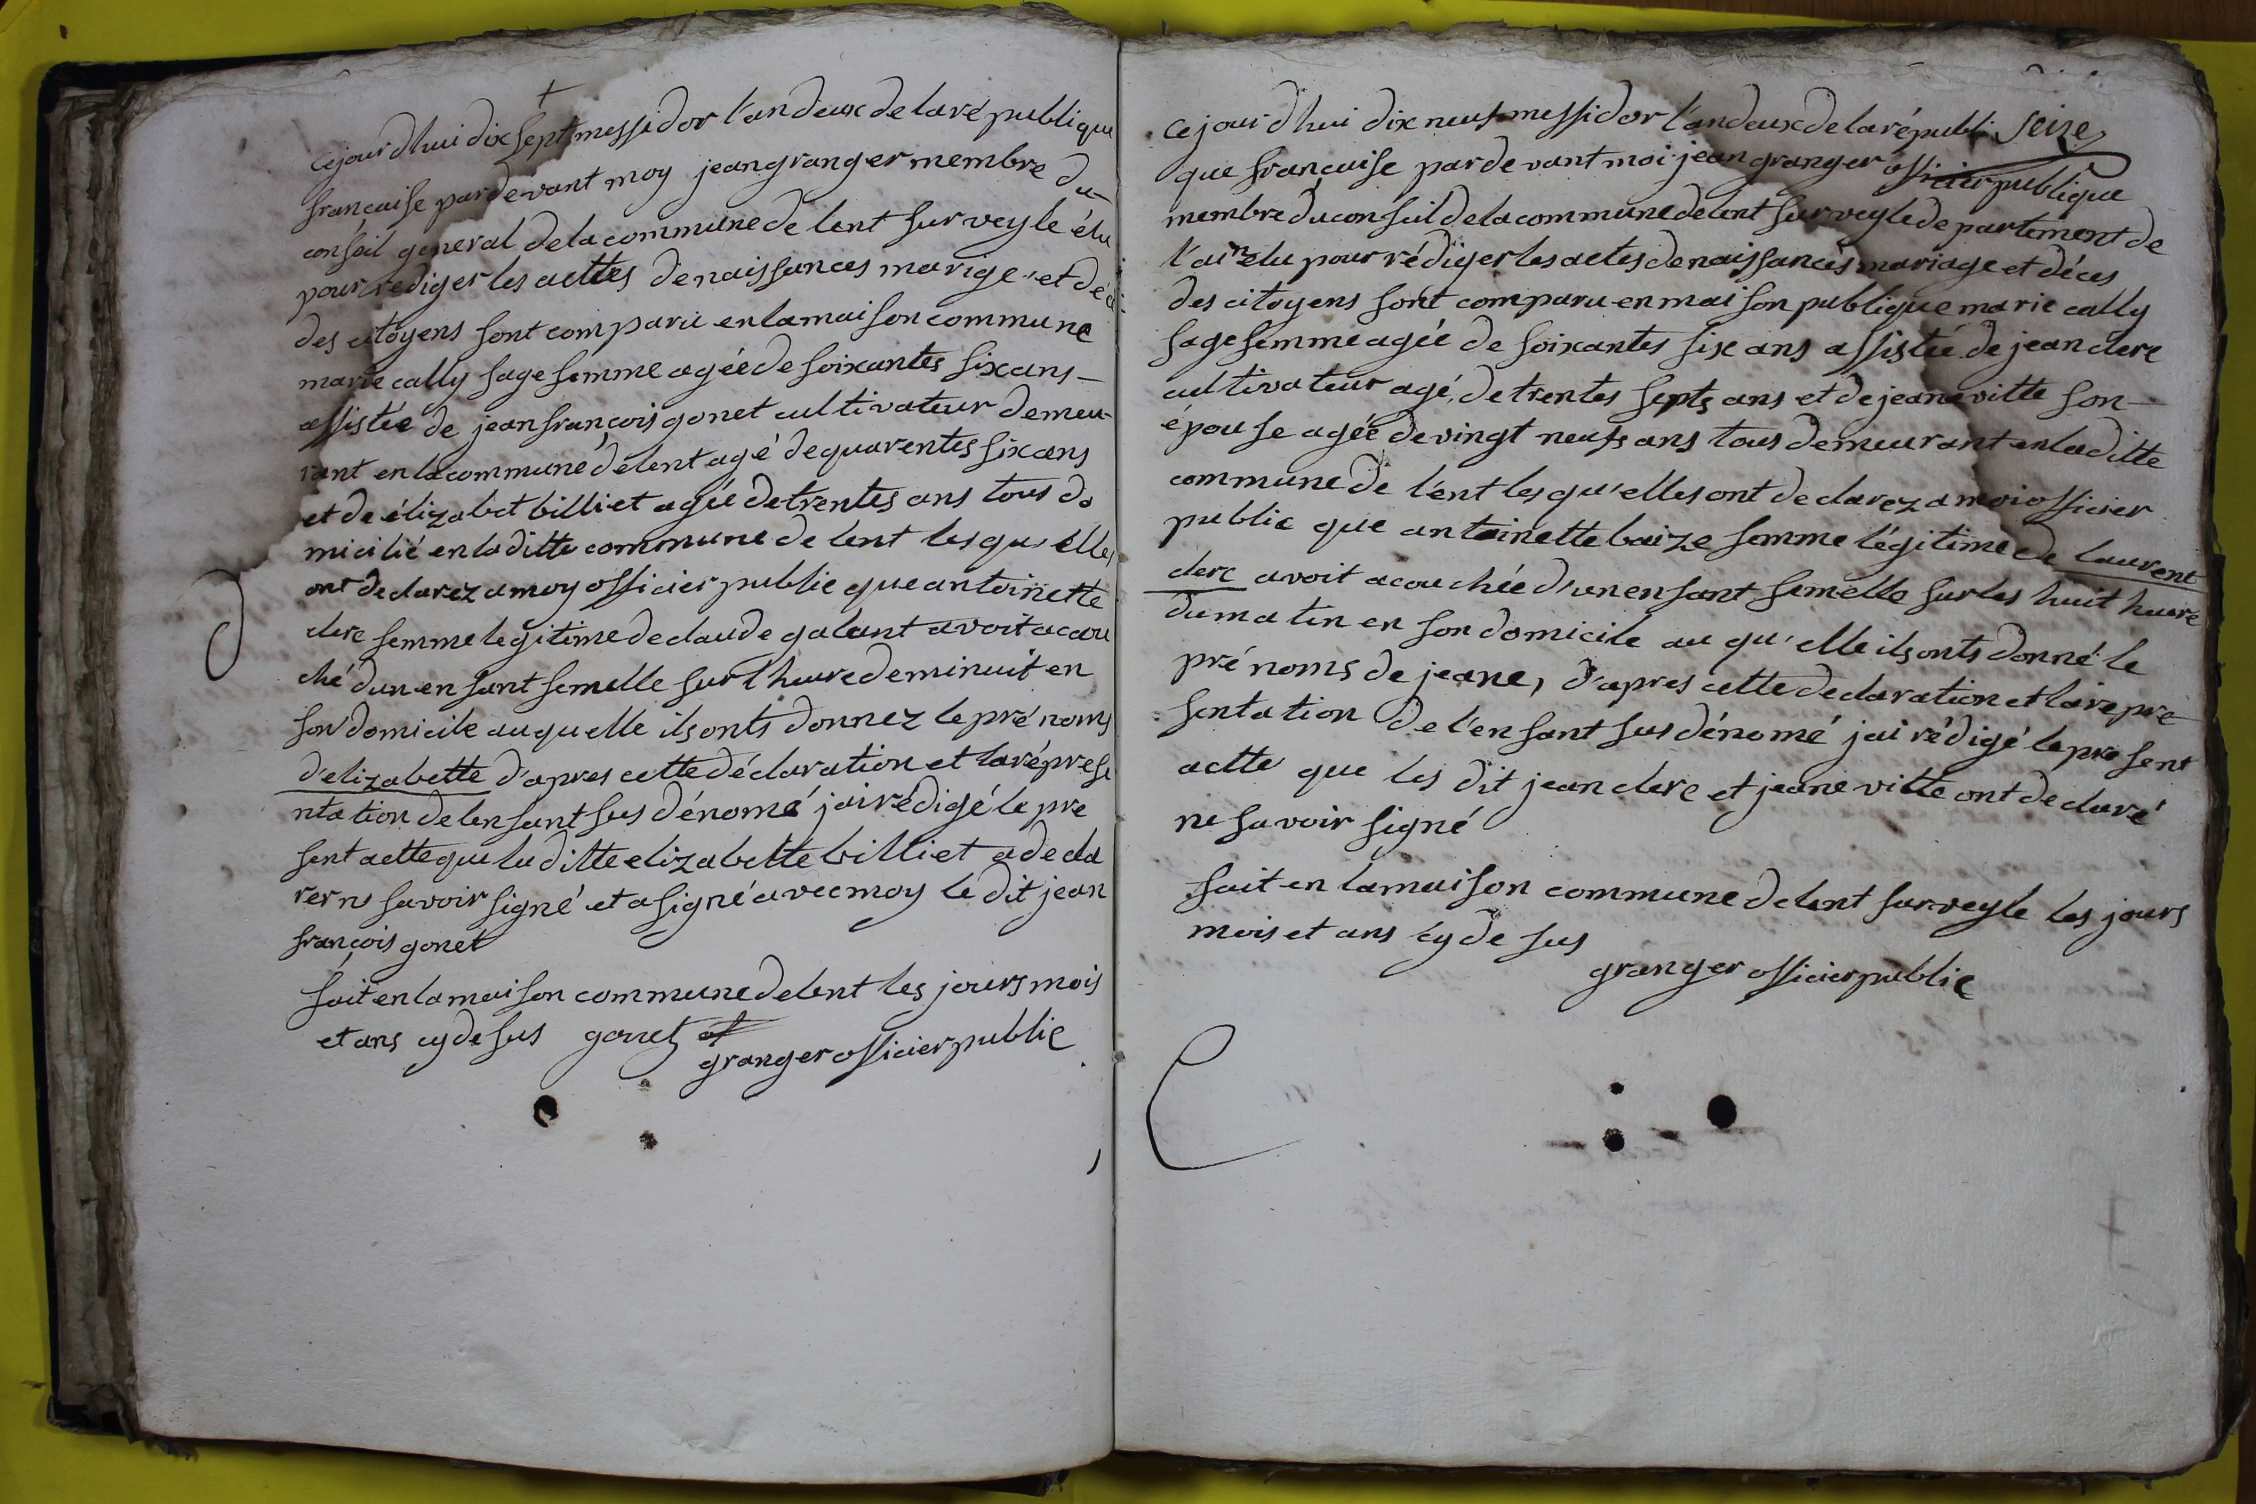 cejourdhui dix sept messidor l'an deux de la république
française pardevant moy jean granger membre du
conseil general de la commune de lent sur veyle élu
pour rediger les acttes de naissances marige et déc
des citoyens sont comparu en la maison commune
marie cally sage femme agée de soixantes six ans
assistée de jean françois gonet cultivateur demeu
rant en la commune de lent agé de quarentes six ans
et de élizabet billiet agée de trentes ans tous do
micilié en la ditte commune de lent lesqu'elles
ont declarez a moy officier public que antoinette
clerc femme legitime de claude galant avoit acou
ché dun enfant femelle sur l'heure de minuit en
son domicile auquelle ils onts donnez le pré noms
d'elizabette d'apres cette déclaration et la réprese
ntation de lenfant sus dénomé jai rédigé le pre
sent actte que la ditte elizabette billiet a decla
rer ne savoir signé et a signé avec moy le dit jean
françois gonet
fait en la maison commune de lent les jours mois
et ans cy de sus gonet
granger officier public
seize
cejour d'hui dix neuf messidor l'an deux de la républi
que française pardevant moi jean granger officier publique
membre du conseil de la commune de lent sur veyle departement de
l'ain elu pour rédiger les actes de naissances mariage et déces
des citoyens sont comparu en maison publique marie cally
sage femme agée de soixantes six ans assistée de jean clerc
cultivateur agé de trentes septs ans et de jeane vitte son
épouse agée de vingt neufs ans tous demeurant en la ditte
commune de l'ent lesqu'elles ont declarez a moi officier
public que antoinette baize femme légitime de laurent
clerc avoit acouchée d'un enfant femelle sur les huit heure
du matin en son domicile au qu'elle ils onts donné le
pré noms de jeane, d'apres cette declaration et la repre
sentation de l'enfant sus dénomé jai rédigé le présent
actte que les dit jean clerc et jeane vitte ont declaré
ne savoir signé
fait en la maison commune de lent sur veyle les jours
mois et ans cy de sus
granger officier public